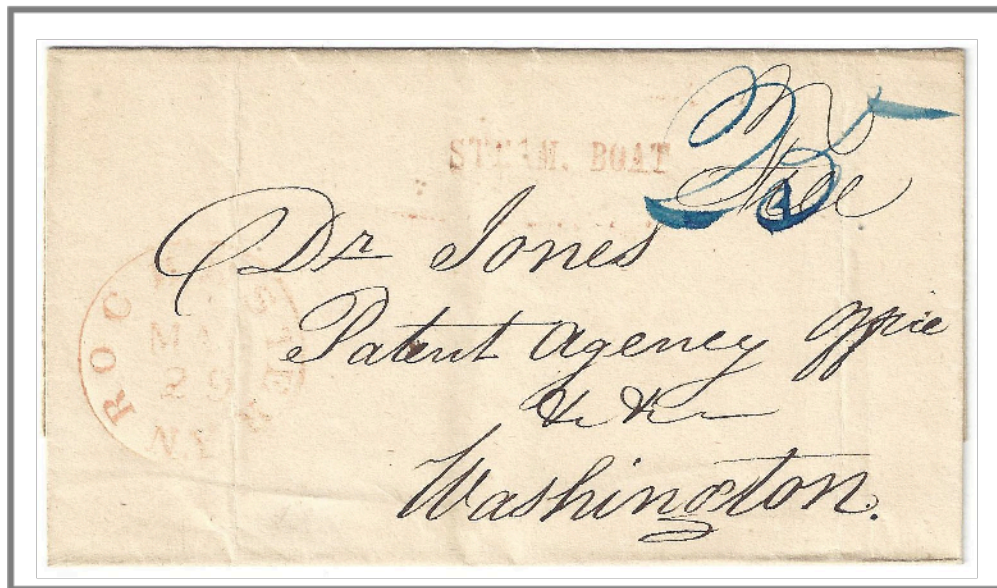 STEAM. BOAT
Dr Jones
Patent Agency Office
&c &c
Washington.
ROCHESTER
N.Y.